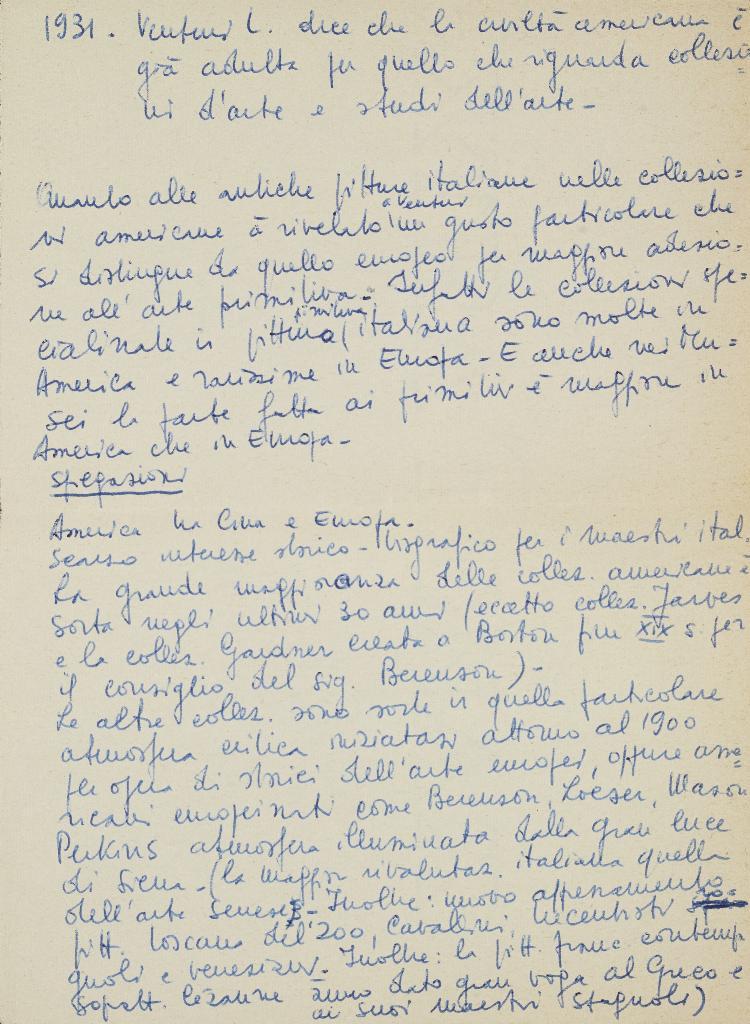 1931. Venturi L. dice che la civiltà americana è
già adulta per quello che riguarda collezio=
ni d'arte e studi dell'arte-
Quanto alle antiche pitture italiane nelle collezio=
ni americane à rivelato a Venturi un gusto particolare che
si distingue da quello europeo per maggiore adesio=
ne all'arte primitiva. Infatti le collezioni spe=
cializzate in pittura primitiva italiana sono molte in
America e rarissime in Europa - E anche nei Mu=
sei la parte fatta ai primitivi è maggiore in
America che in Europa-
Spegazioni
America tra Cina e Europa.
Scarso interesse storico-biografico per i maestri ital.
La grande maggioranza delle collez. americane è
sorta negli ultimi 30 anni (eccetto collez. Jarves
e la collez. Gardner creata a Boston fine XIX s. per
il consiglio del sig. Berenson)-
Le altre collez. sono sorte in quella particolare
atmosfera critica iniziatasi attorno al 1900
per opera di storici dell'arte europei, oppure ame=
ricani europeinati come Berenson, Loeser, Mason
Perkins atmosfera illuminata dalla gran luce
di Siena - (la maggior rivalutaz. italiana quella
dell'arte senese - Inoltre: nuovo apprezzamento
pitt. toscana del '200, Cavallini, secentisti spa=
gnoli e veneziani. Inoltre: la pitt. franc. contemp
sopratt. Cézanne ànno dato gran voga al Greco e
ai suoi maestri spagnoli)